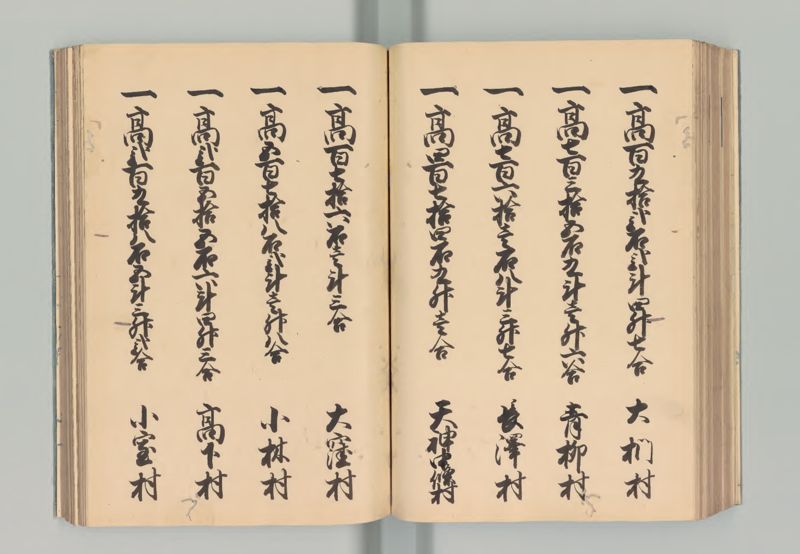 一高百九拾弐石弐斗四升七合 大椚村
一高七百三拾五石九斗壱升六合 青柳村
一高七百六拾壱石八斗三升七合 長澤村
一高四百七拾四石九升壱合 天神中條村
一高百七拾六石壱斗三合 大窪村
一高五百七拾八石弐斗壱升八合 小林村
一高弐百五拾五石六斗四升三合 高下村
一高弐百九拾八石五斗三升弐合 小室村